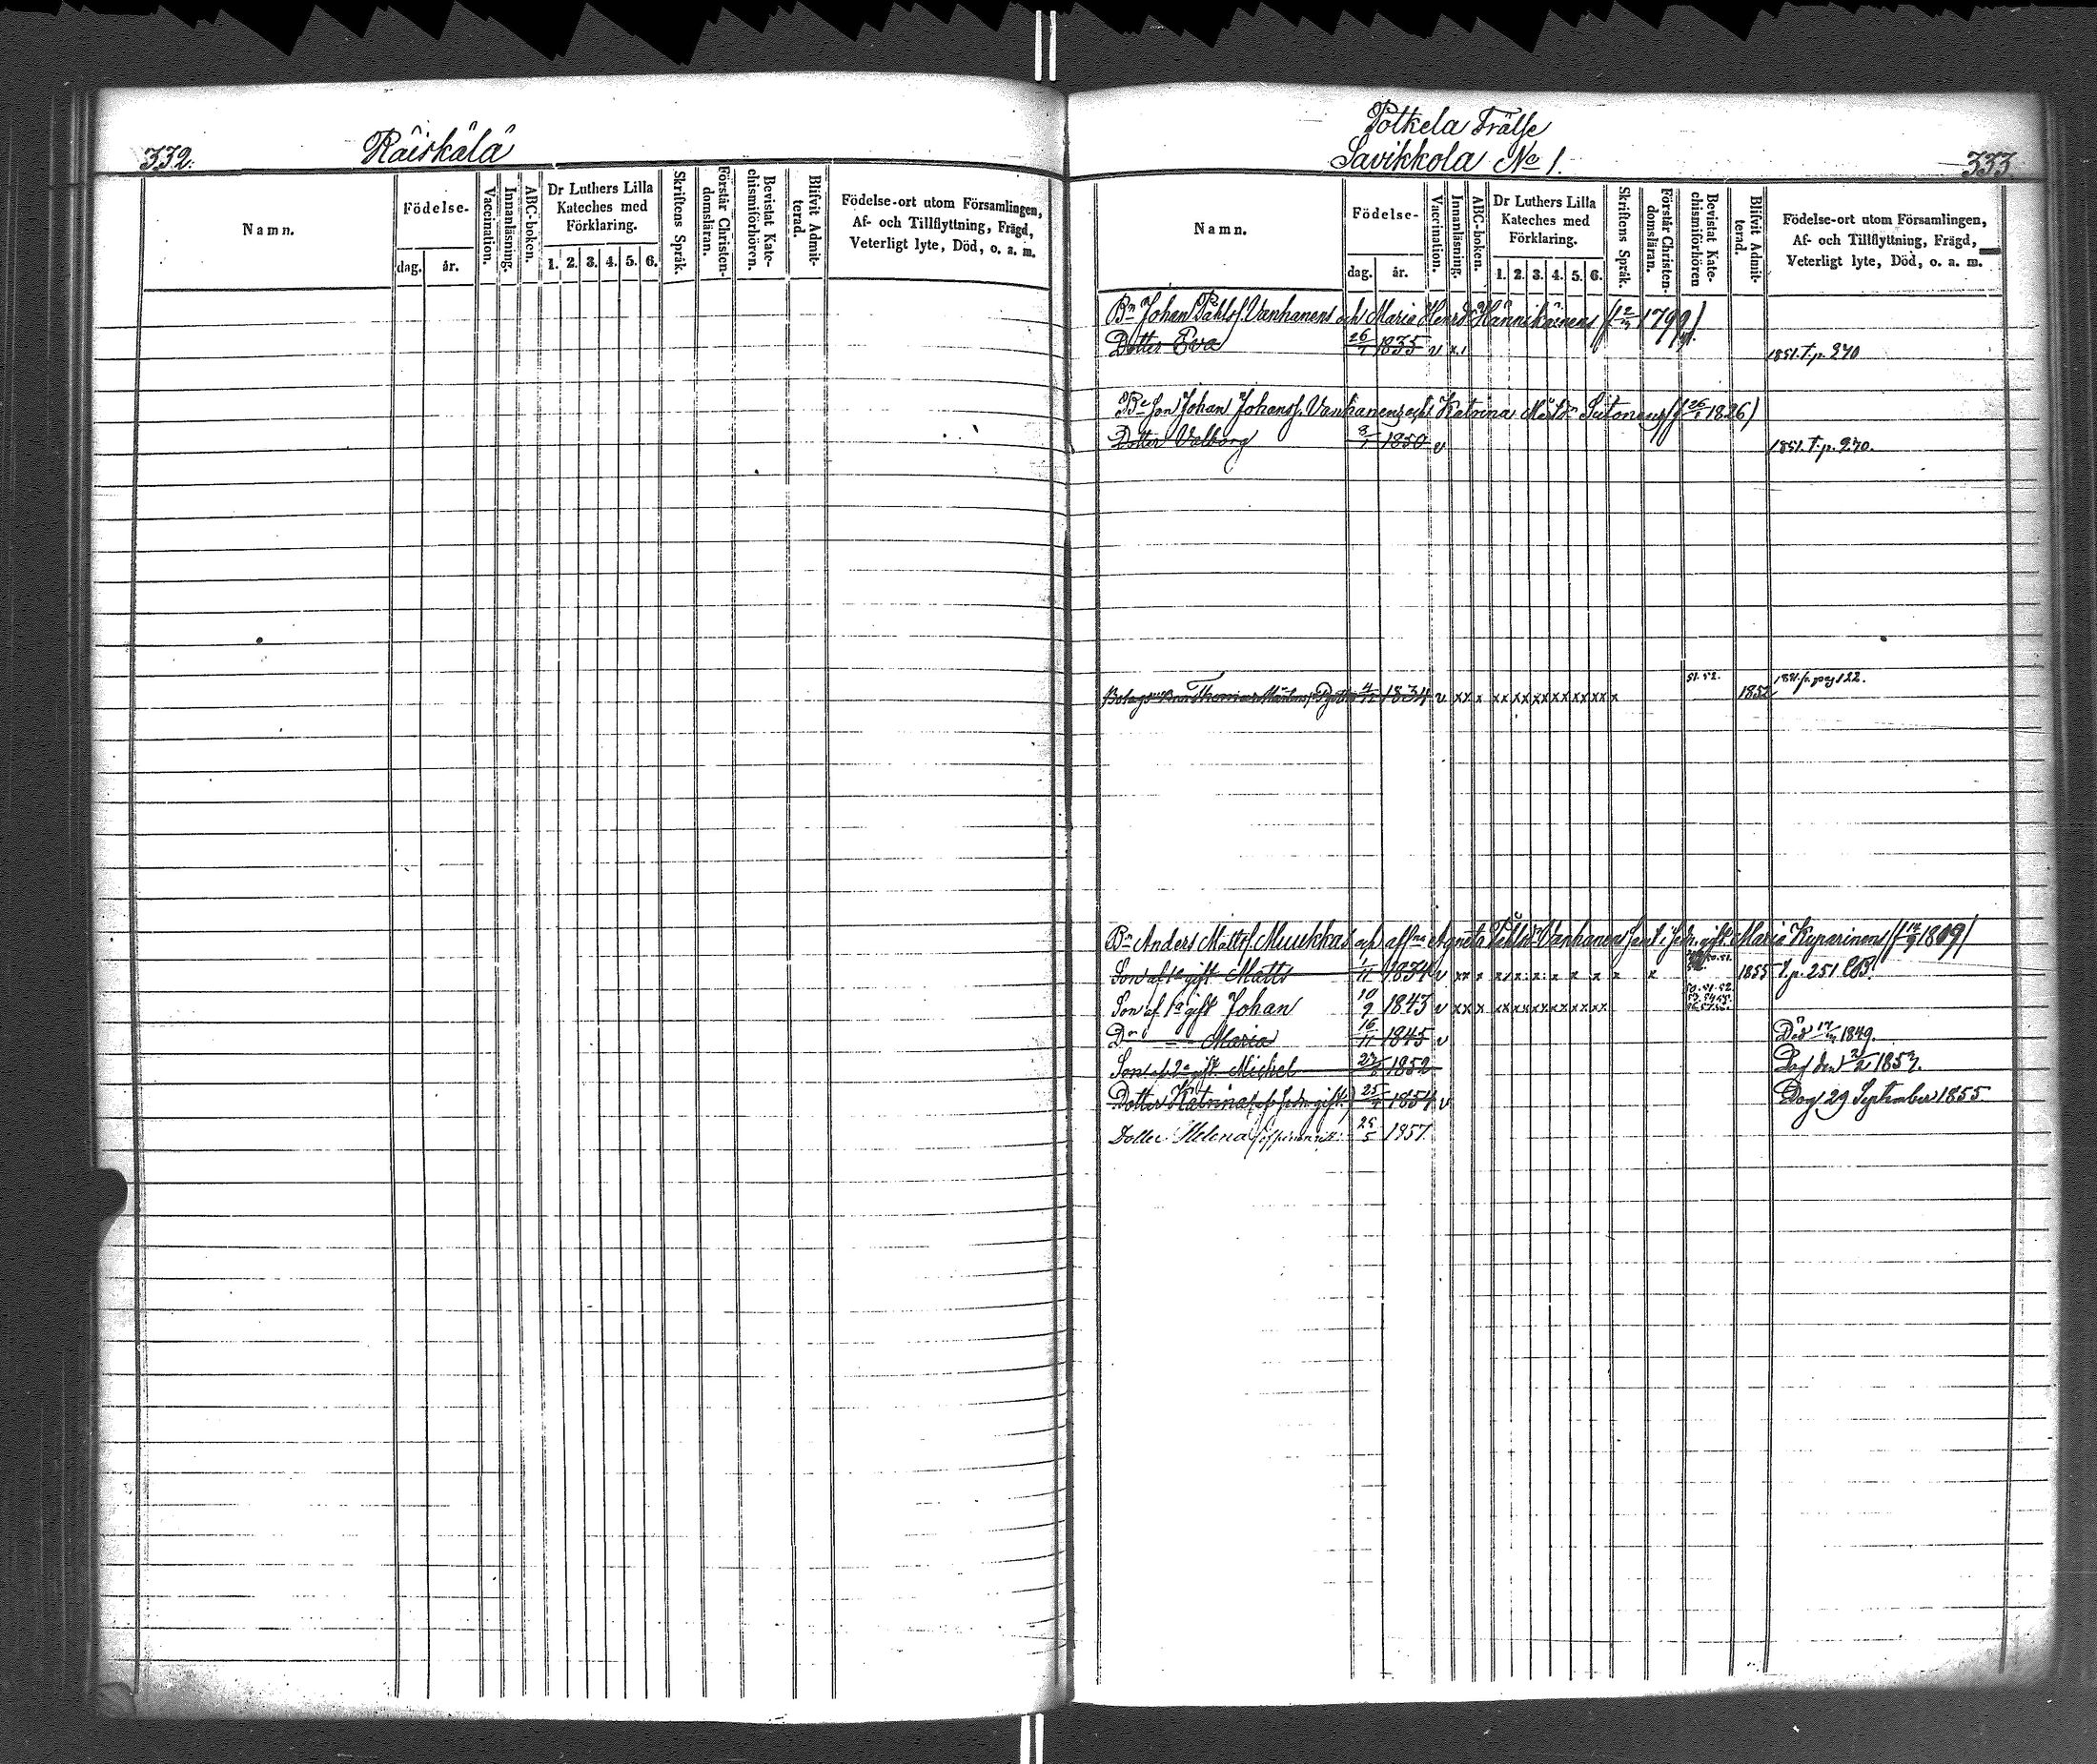 332.
Räiskälä
Namn.
Födelse-
dag. år.
Vaccination.
Innanläsning.
ABC-boken.
Dr Luthers Lilla
Kateches med
Förklaring.
1. 2. 3. 4. 5. 6.
Skriftens Språk.
Förstår Christen-
domsläran.
Bevistat Kate-
chismiförhören.
Blifvit Admit-
terad.
Födelse-ort utom Församlingen,
Af- och Tillflyttning, Frägd,
Veterligt lyte, Död, o. a. m.
Potkela Frälse
Savikkola No 1.
333
Namn.
Födelse-
dag. år.
Vaccination.
Innanläsning.
ABC-boken.
Dr Luthers Lilla
Kateches med
Förklaring.
1. 2. 3. 4. 5. 6.
Skriftens Språk.
Förstår Christen-
domsläran.
Bevistat Kate-
chismiförhören
Blifvit Admit-
terad.
Födelse-ort utom Församlingen,
Af- och Tillflyttning, Frägd,
Veterligt lyte, Död, o. a. m.
Bn Johan Påhlsf. Vanhanens och Maria Henrsdr Hännikäinens 1799
Dotter Eva 26/1 1835 v x 1851. T. p. 270
Be Son Johan Johansf. Vanhanens och Katrina Mårtdr Sutonens (f 26/1 1826)
Dotter Valborg 8/1 1850 v 1851. T. p. 270.
51. 52.
Thomas 1834 v xx x xx xx xx xx xx xx x 1852 122.
Bn Anders Mattsf. Muukkas och Agneta Påhlsdr Vanhanens samt i gift. Maria Kyparinens 1809)
Son af 1a gift Matts 1/11 1834 v xx x x x x x x x x x 1855 T. p. 251
Son af 1a gift Johan 10/9 1843 v xx x xx xx xx xx xx xx 50. 51. 52.
Dr = Maria 16/11 1845 v Död 1849.
Son af 2a gift Michel 1852
Dotter Katrina 25/4 1854 v Dog 29 September 1855
Dotter Helena 1857.